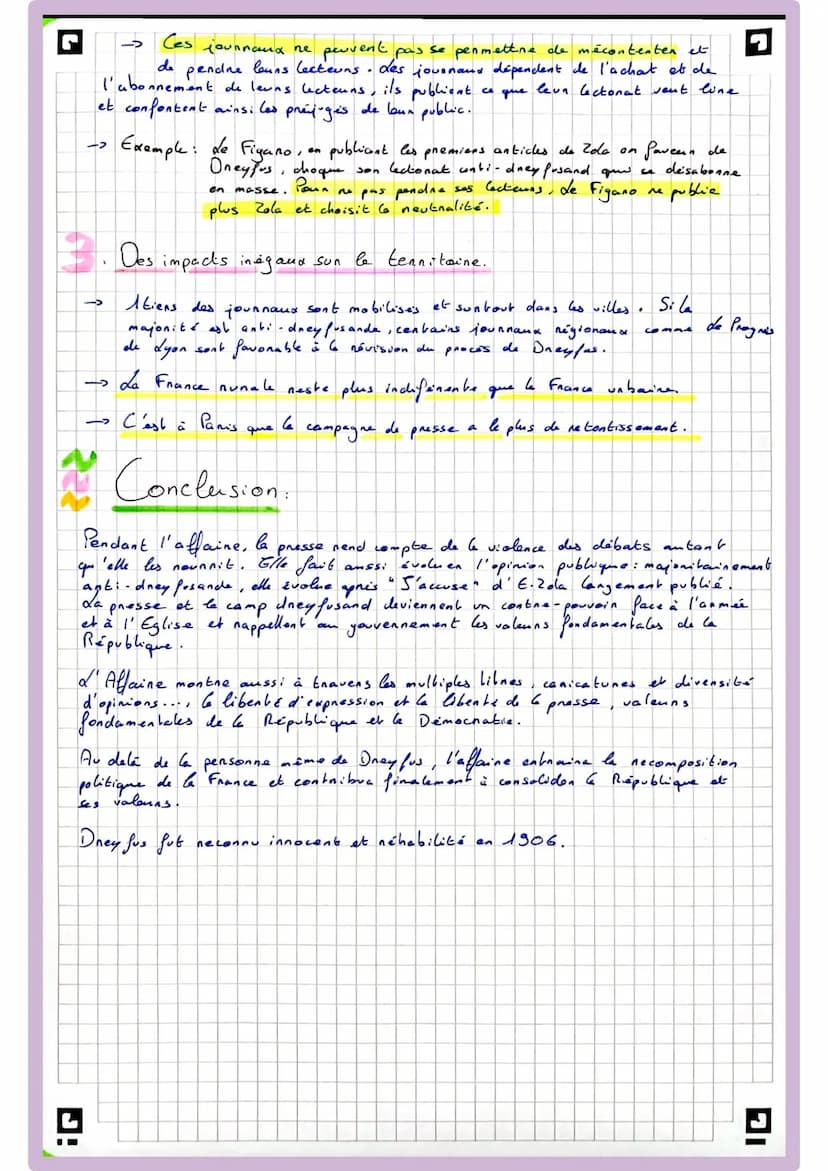 → Ces journaux ne peuvent pas se permettre de mécontenter et
de perdre leurs lecteurs. Les journaux dépendent de l'achat et de
l'abonnement de leurs lecteurs, ils publient ce que leur lectorat veut lire
et confortent ainsi les préjugés de leur public.
→ Exemple : Le Figaro, en publiant les premiers articles de Zola en faveur de
Dreyfus, choque son lectorat anti-dreyfusard qui se désabonne
en masse. Pour ne pas perdre ses lecteurs, Le Figaro ne publie
plus Zola et choisit la neutralité.
3. Des impacts inégaux sur le territoire.
→ 1 tiers des journaux sont mobilisés et surtout dans les villes. Si la
majorité est anti-dreyfusarde, certains journaux régionaux comme Le Progrès
de Lyon sont favorable à la révision du procès de Dreyfus.
→ La France rurale reste plus indiférente que la France urbaine.
→ C'est à Paris que la campagne de presse a le plus de retentissement.
Conclusion :
Pendant l'affaire, la presse rend compte de la violence des débats autant
qu'elle les nourrit. Elle fait aussi évoluer l'opinion publique : majoritairement
anti-dreyfusarde, elle évolue après "J'accuse" d'E.Zola largement publié.
La presse et le camp dreyfusard deviennent un contre-pouvoir face à l'armée
et à l'Eglise et rappellent au gouvernement les valeurs fondamentales de la
République.
L'Affaire montre aussi à travers les multiples titres, caricatures et diversité
d'opinions..., la liberté d'expression et la liberté de la presse, valeurs
fondamentales de la République et la Démocratie.
Au delà de la personne même de Dreyfus, l'affaire entraine la recomposition
politique de la France et contribua finalement à consolider la République et
ses valeurs.
Dreyfus fut reconnu innocent et réhabilité en 1906.